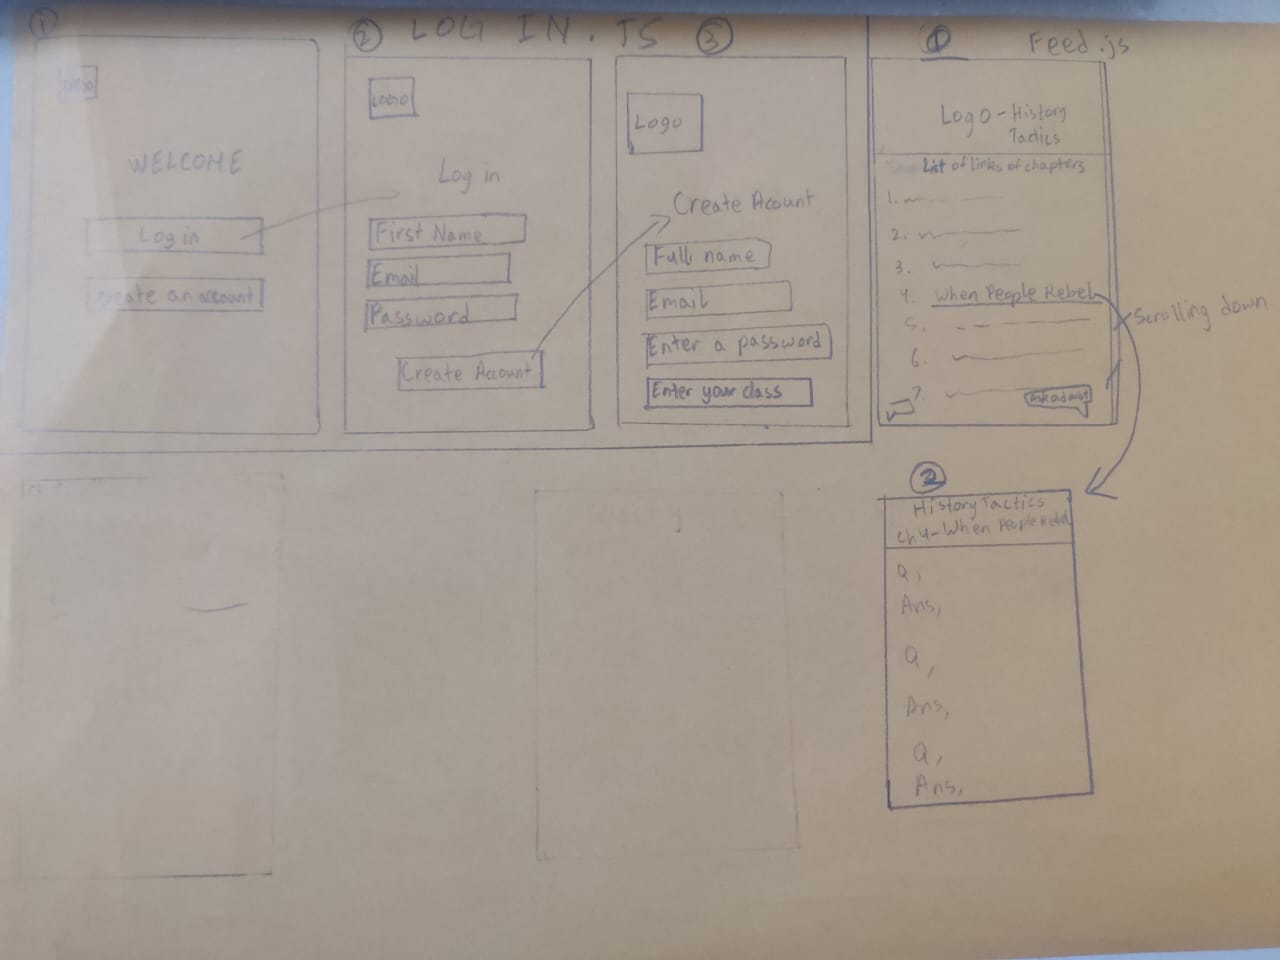 ①
LOGO
WELCOME
Log in
Create an account
② LOG IN.JS ③
LOGO
Log in
First Name
Email
Password
Create Account
Logo
Create Acount
Full name
Email
Enter a password
Enter your class
① Feed.js
Logo - History
Tactics
List of links of chapters
1.
2.
3.
4. When People Rebel
5.
6.
7.
Ask a doubt
Scrolling down
②
History Tactics
Ch 4 - When People Rebel
Q,
Ans,
Q,
Ans,
Q,
Ans,